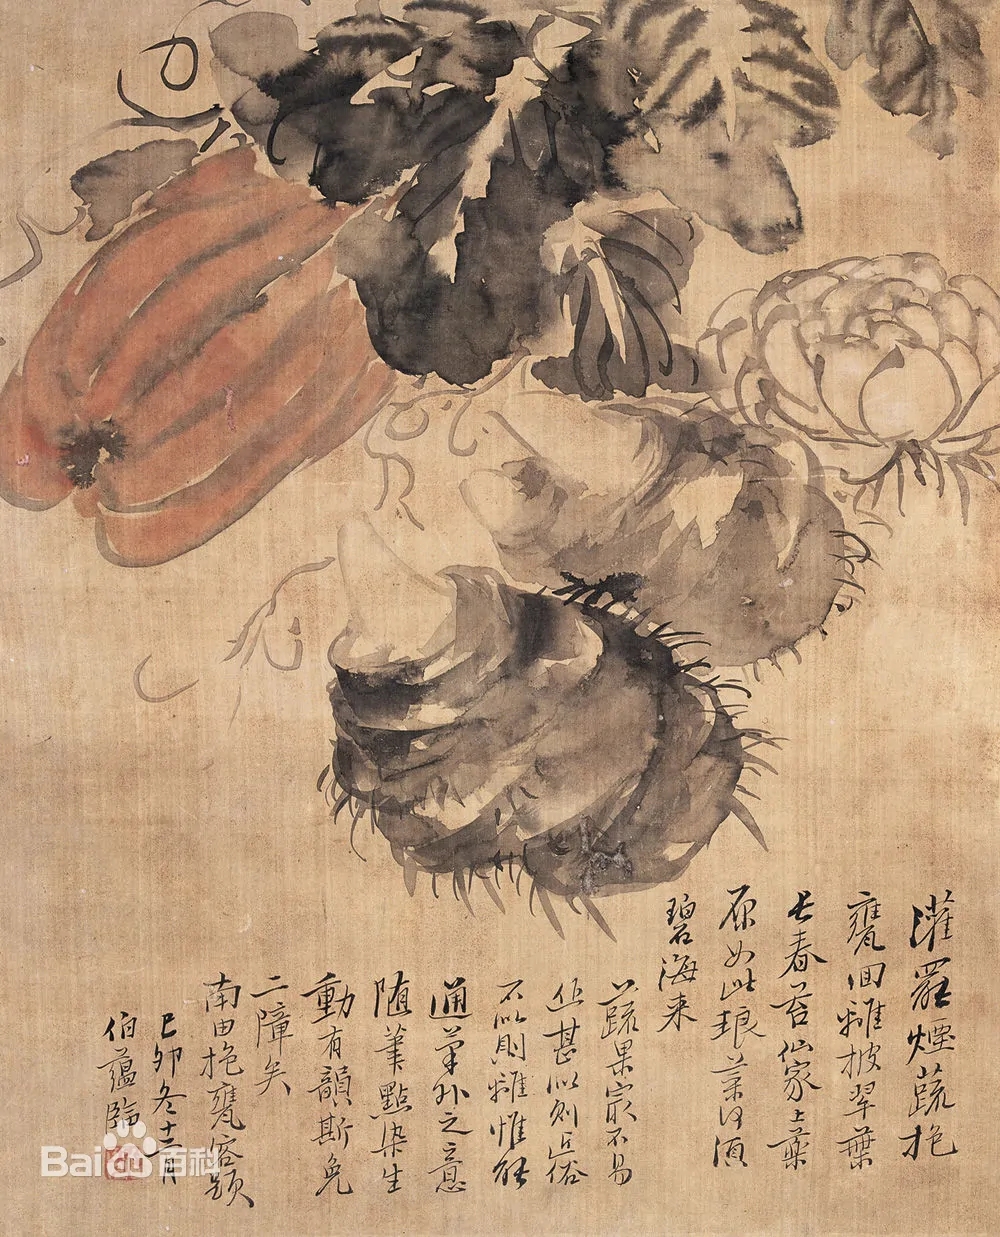 灌罷煙蔬抱
甕回離披翠葉
長春苔仙家上藥
原如此琅菜何須
碧海来
蔬果最不易
作甚似則近俗
不似則離惟能
通筆外之意
随筆點染生
動有韻斯免
二障矣
南田抱甕客題
己卯冬十二月
伯蘊臨
Baidu百科